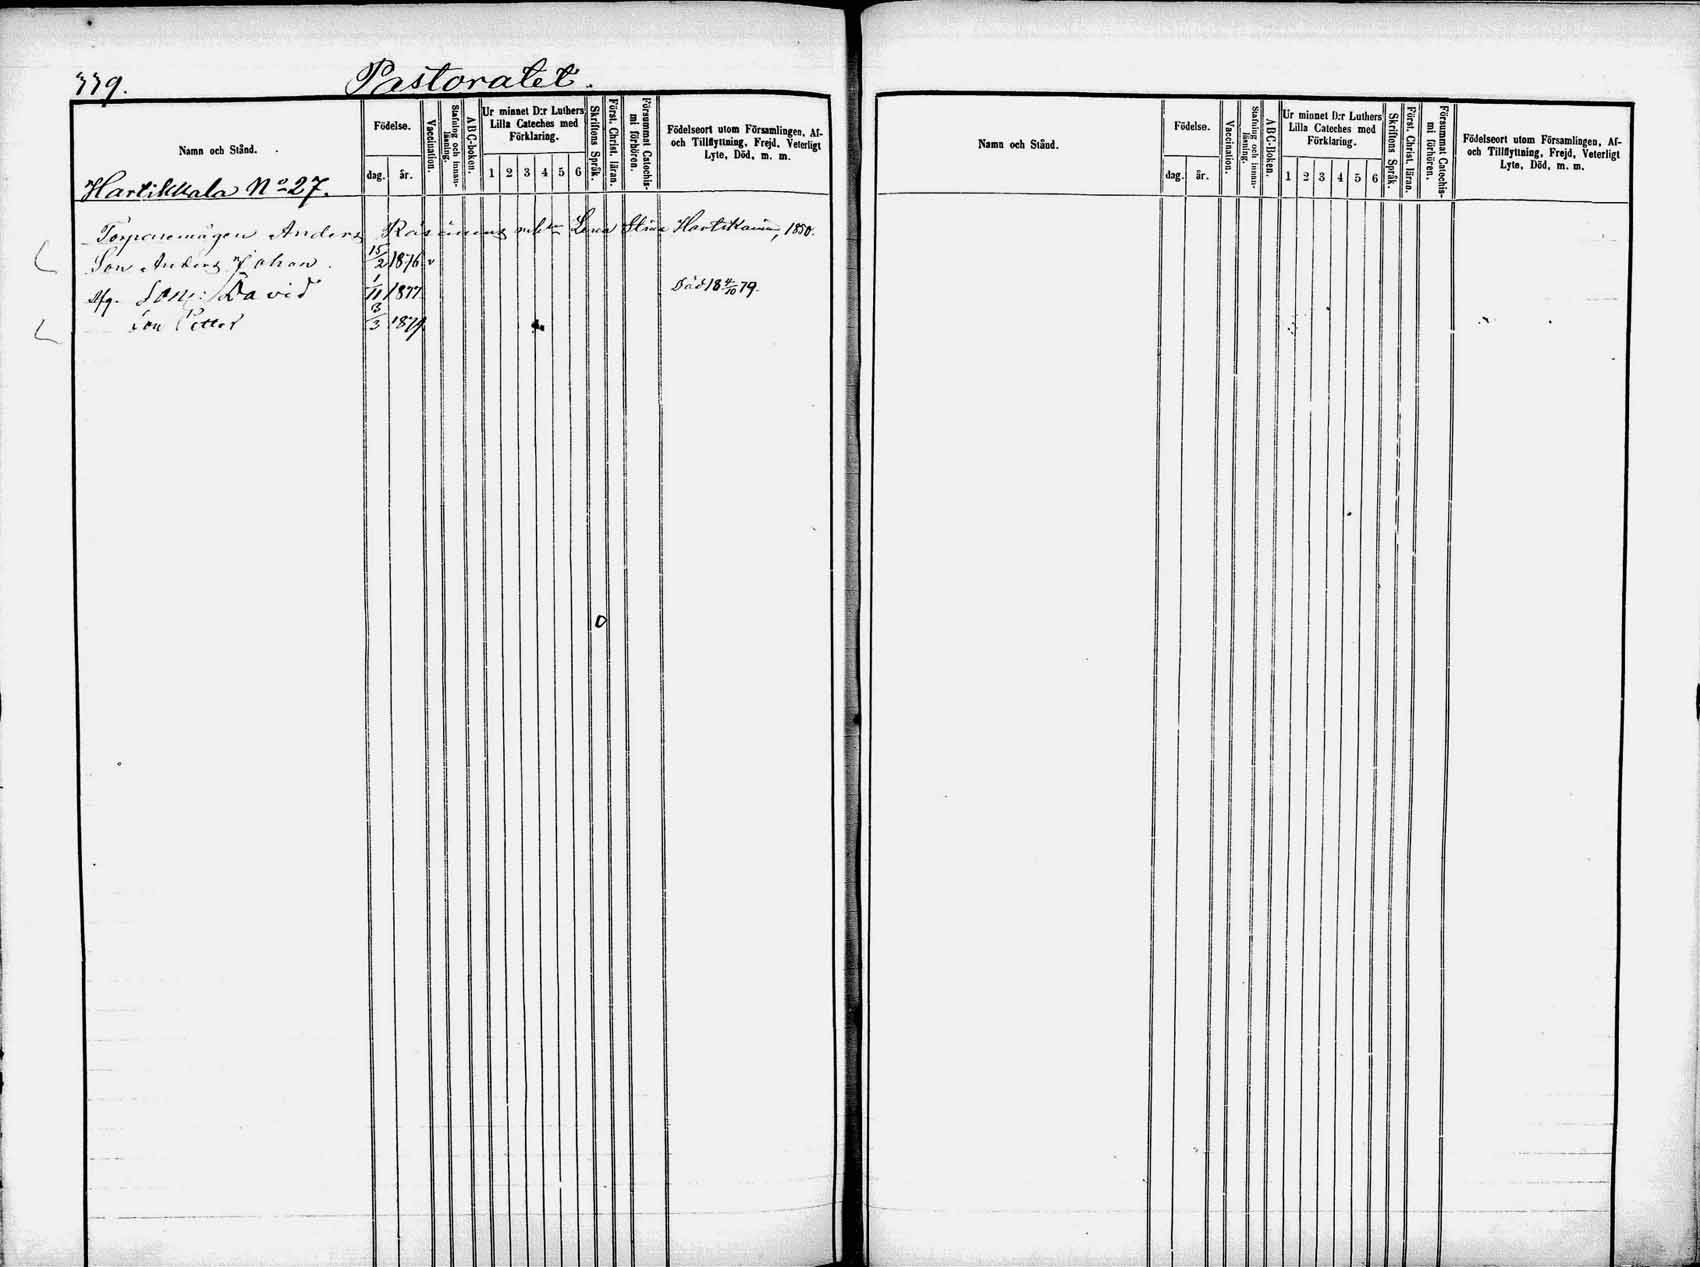 339.
Pastoratet.
Namn och Stånd.
Födelse.
dag.
år.
Vaccination.
Stafning och innanläsning.
ABC-boken.
Ur minnet D:r Luthers
Lilla Cateches med
Förklaring.
1 2 3 4 5 6
Skriftens Språk.
Först. Christ. läran.
Försummat Catechismi förhören.
Födelseort utom Församlingen, Af-
och Tillflyttning, Frejd, Veterligt
Lyte, Död, m. m.
Hartikkala No 27.
Torparemågen Anders Räsäinens m. h:tru Lena Stina Hartikain, 1850.
Son Anders Johan. 15/2 1876 v
Dfg. Son: David 1/11 1877 Död 18 /10 79.
Son Petter 3/3 1879.
Namn och Stånd.
Födelse.
dag.
år.
Vaccination.
Stafning och innanläsning.
ABC-Boken.
Ur minnet D:r Luthers
Lilla Cateches med
Förklaring.
1 2 3 4 5 6
Skriftens Språk.
Först. Christ. läran.
Försummat Catechismi förhören.
Födelseort utom Församlingen, Af-
och Tillflyttning, Frejd, Veterligt
Lyte, Död, m. m.